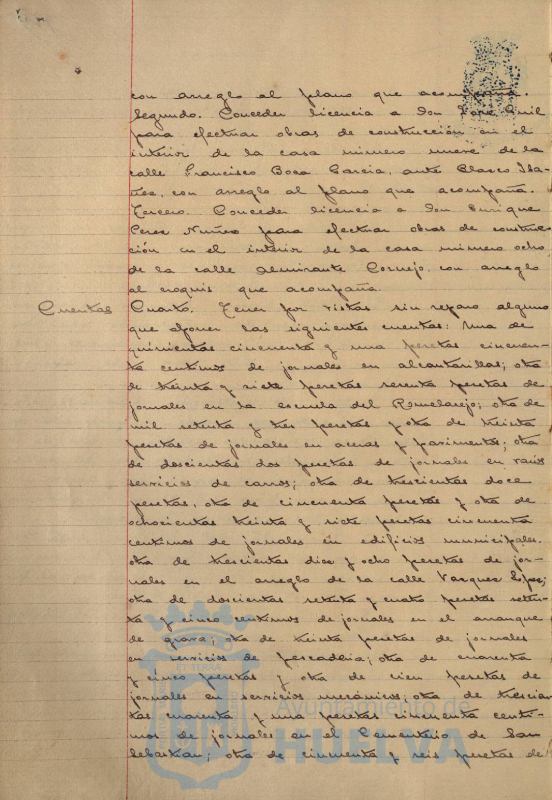 con arreglo al plano que acompaña.
Segundo. Conceder licencia a don José Gil
para efectuar obras de construcción en el
interior de la casa número nueve de la
calle Francisco Boca Garcia, ante Blasco Iba-
ñez, con arreglo al plano que acompaña.
Tercero. Conceder licencia a don Enrique
Perez Nuñez para efectuar obras de construc-
ción en el interior de la casa número ocho
de la calle Almirante Cornejo, con arreglo
al croquis que acompaña.
Cuentas
Cuarto. Tener por vistas sin reparo alguno
que oponer las siguientes cuentas: Una de
quinientas cincuenta y una pesetas cincuen-
ta centimos de jornales en alcantarillas; otra
de treinta y siete pesetas setenta pesetas de
jornales en la escuela del Romeralejo; otra de
mil setenta y tres pesetas y otra de treinta
pesetas de jornales en aceras y pavimentos; otra
de doscientas dos pesetas de jornales en varios
servicios de carros; otra de trescientas doce
pesetas, otra de cincuenta pesetas y otra de
ochocientas treinta y siete pesetas cincuenta
centimos de jornales en edificios municipales.
otra de trescientas diez y ocho pesetas de jor-
nales en el arreglo de la calle Vazquez Lopez;
otra de doscientas setenta y cuatro pesetas seten-
ta y cinco centimos de jornales en el arranque
de grava; otra de treinta pesetas de jornales
en servicios de pescaderia; otra de cuarenta
y cinco pesetas y otra de cien pesetas de
jornales en servicios mecánicos; otra de trescien-
tas cuarenta y una pesetas cincuenta centi-
mos de jornales en el Cementerio de San
Sebastian; otra de cincuenta y seis pesetas de
Ayuntamiento de
HUELVA